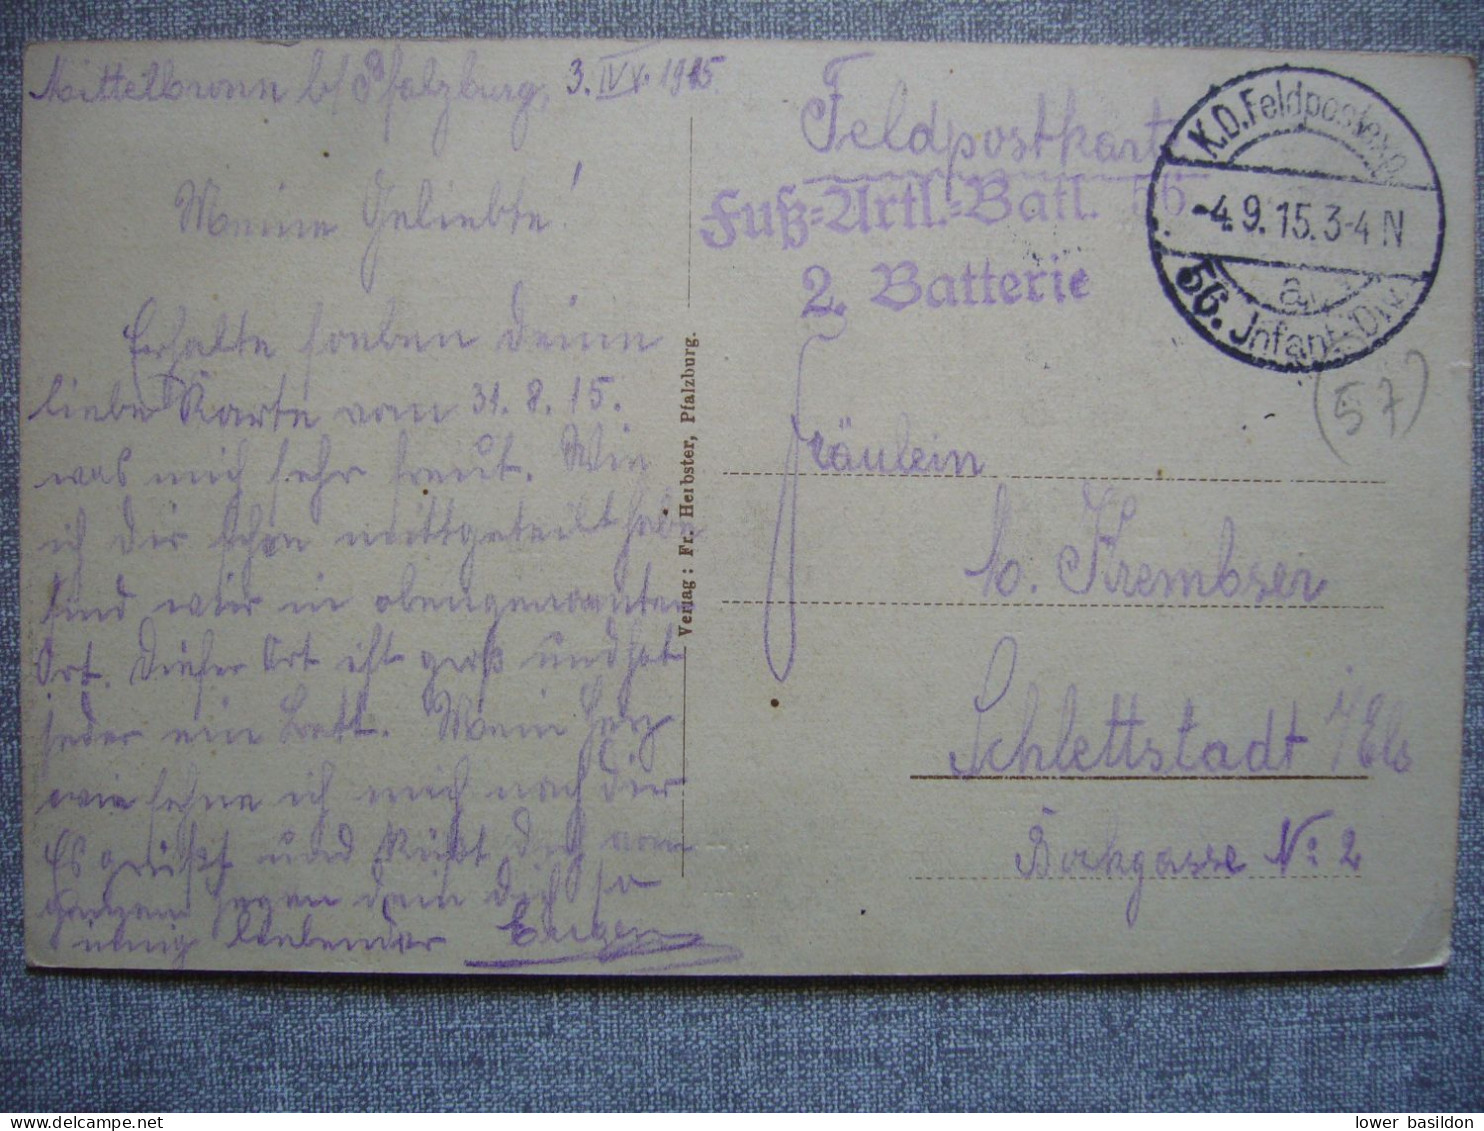 Mittelbronn b/Pfalzburg, 3. IX. 1915.
Meine Geliebte!
Erhalte soeben deine
liebe Karte vom 31. 8. 15.
was mich sehr freut. Wie
ich dir schon mittgeteilt habe
sind wir in obengenannten
Ort. Dieser Ort ist groß und hat
jeder ein Bett. Mein Herz
wie sehne ich mich nach dir
Es grüßt und Küßt dich vom
ganzem Herzen dein dich so
innig liebender Eugen
Verlag: Fr. Herbster, Pfalzburg.
Feldpostkarte
Fuß-Artl.-Batl. 56.
2. Batterie
K.D. Feldpostexp.
-4.9.15.3-4 N
a
56. Infant.-Div.
(57)
Fräulein
b. Krembser
Schlettstadt i/Els
Bockgasse No 2
lower basildon